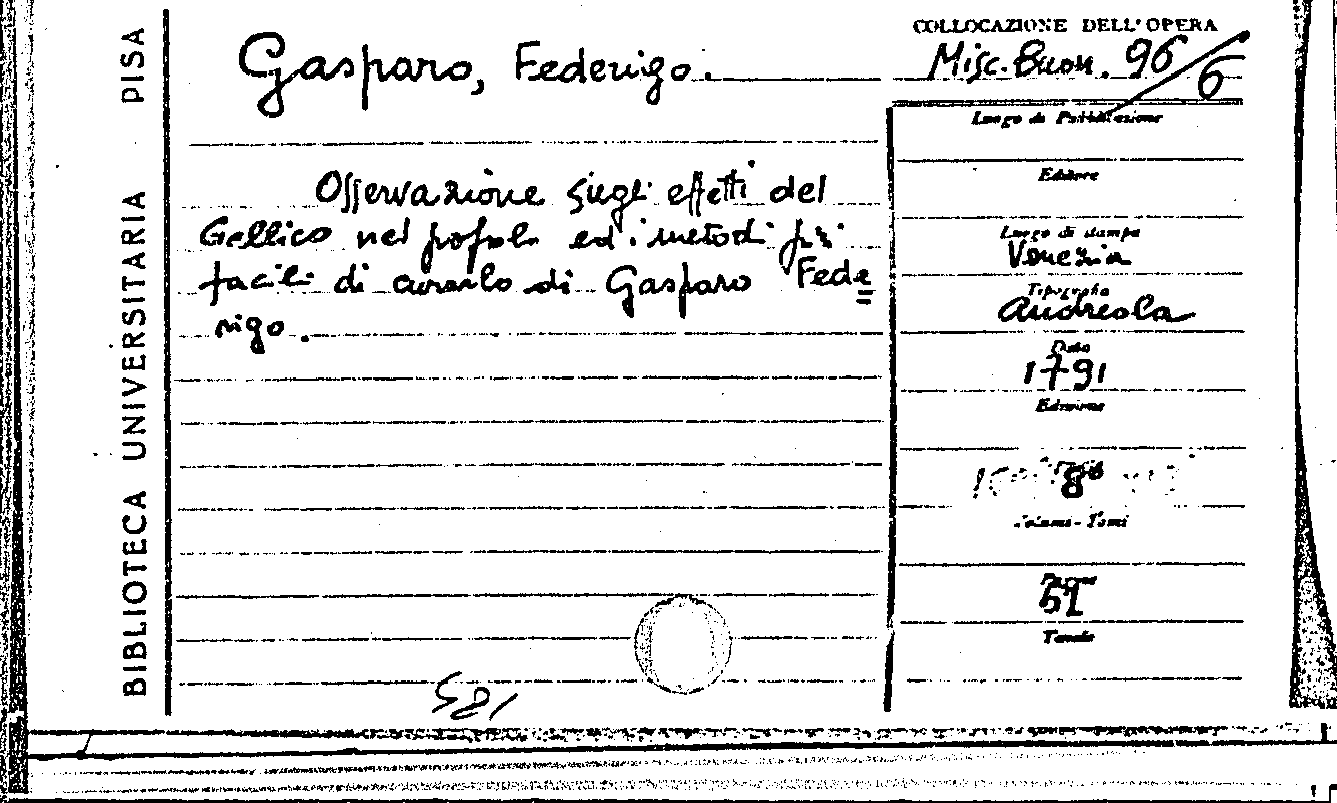 BIBLIOTECA UNIVERSITARIA PISA
COLLOCAZIONE DELL'OPERA
Misc. Buon. 96/6
Gasparo, Federigo.
Osservazione sugli effetti del
Gallico nel popolo ed i metodi più
facili di curarlo di Gasparo Fede=
rigo.
Luogo di Pubblicazione
Editore
Luogo di stampa
Venezia
Tipografia
Andreola
Data
1791
Edizione
8°
Volumi - Tomi
Pagine
51
Tavole
581